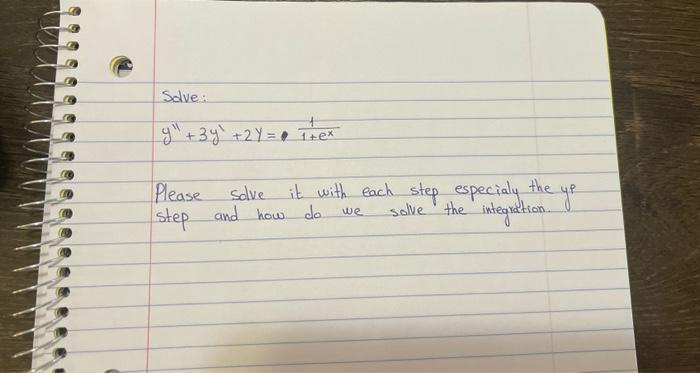 Solve:
y'' + 3y' + 2y = 1/1+eˣ
Please solve it with each step especialy the yp
step and how do we solve the integration.